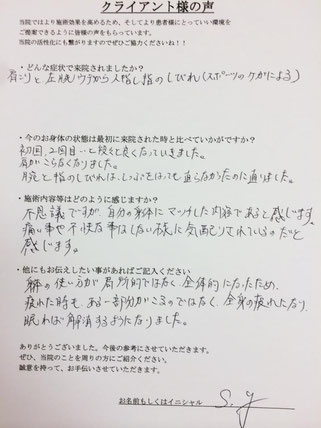 クライアント様の声
当院ではより施術効果を高めるため、そしてより患者様にとっていい環境を
ご提案できるように皆様の声をもらっています。
当院の活性化にも繋がりますのでぜひご協力くださいね！！
・どんな症状で来院されましたか？
肩こりと左腕ウデから人指し指のしびれ(スポーツのケガによる)
・今のお身体の状態は最初に来院された時と比べていかがですか？
初回、2回目…と段々と良くなっていきました。
肩がこらなくなりました。
腕と指のしびれは、しっぷをはっても直らなかったのに直りました。
・施術内容等はどのように感じますか？
不思議ですが、自分の身体にマッチした内容であると感じます。
痛い事や不快な事はしない様に気配りされているのだと
感じます。
・他にもお伝えしたい事があればご記入ください
躰の使い方が局所的ではなく、全体的になったため、
疲れた時も、ある一部分がこるのではなく、全身の疲れとなり、
眠れば解消するようになりました。
ありがとうございました。今後の参考にさせていただきます。
ぜひ、当院のことを周りの方にご紹介ください。
誠意を持って、お手伝いさせていただきます。
お名前もしくはイニシャル S. Y